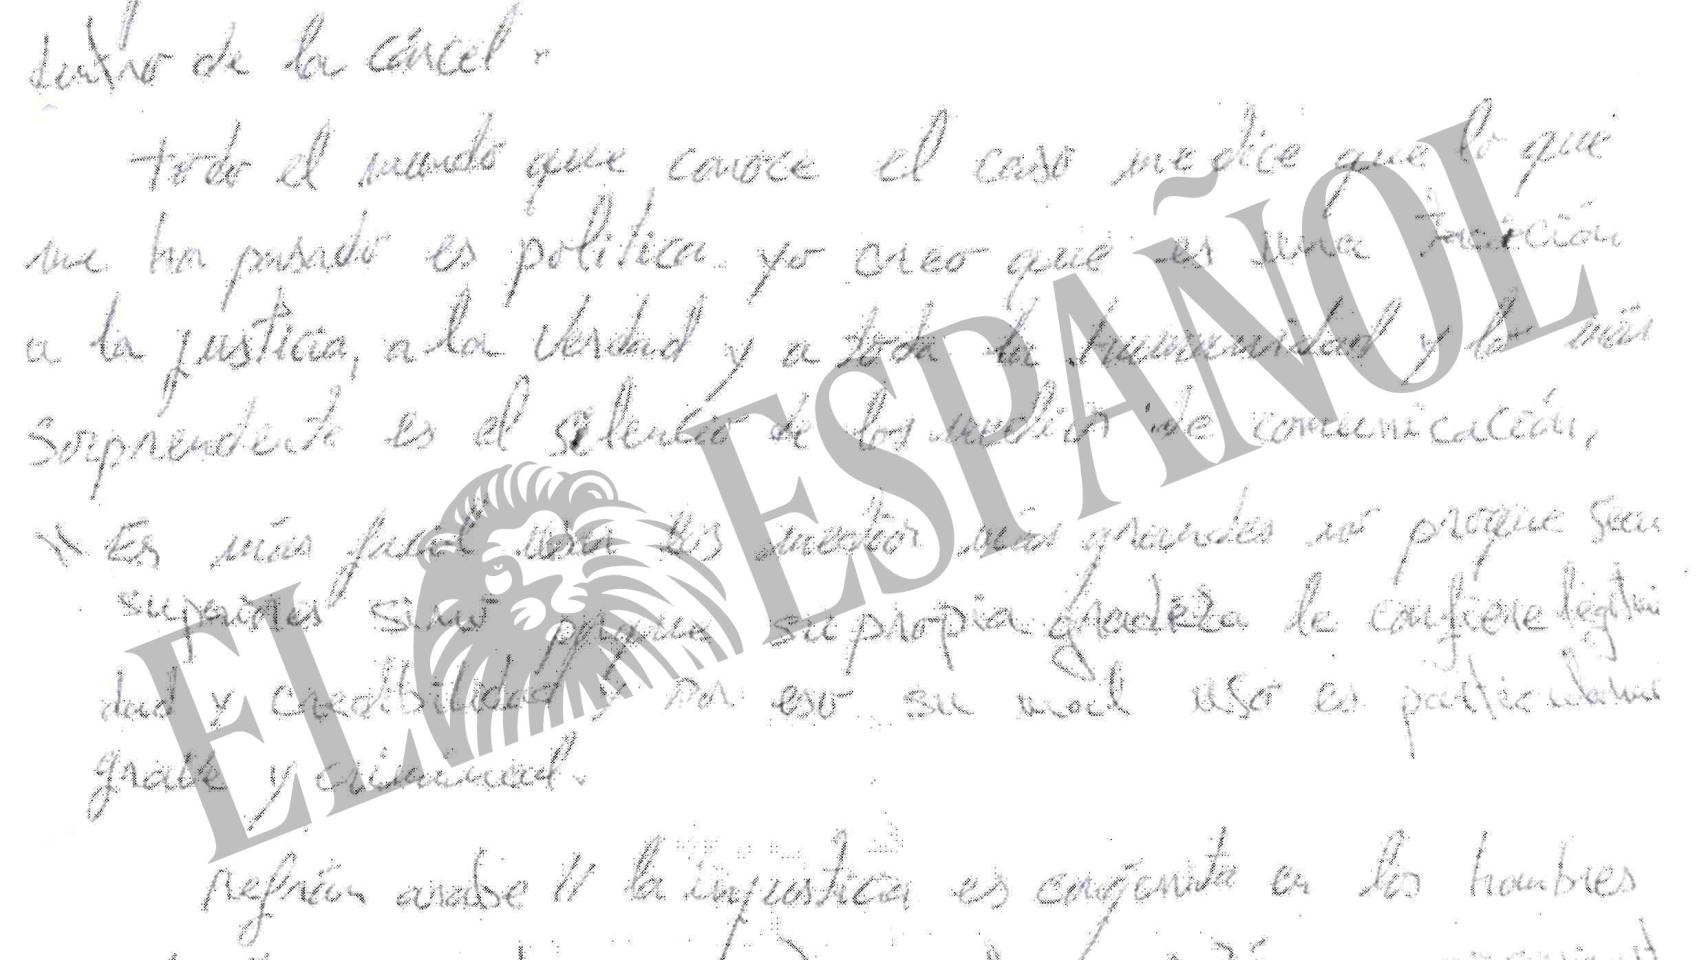 dentro de la cárcel.
todo el mundo que conoce el caso me dice que lo que
me ha pasado es política. yo creo que es una
a la justicia, a la verdad y a toda la humanidad y lo más
sorprendente es el selencio de los medios de comunicación,
" Es más facil los medios más grandes no proque sean
superiores sino porque su propia gradeza le confiere
dad y credibilidad y por eso su mal uso es
grave y criminal.
refrán arabe " la injusticia es congénita en los hombres
EL ESPAÑOL